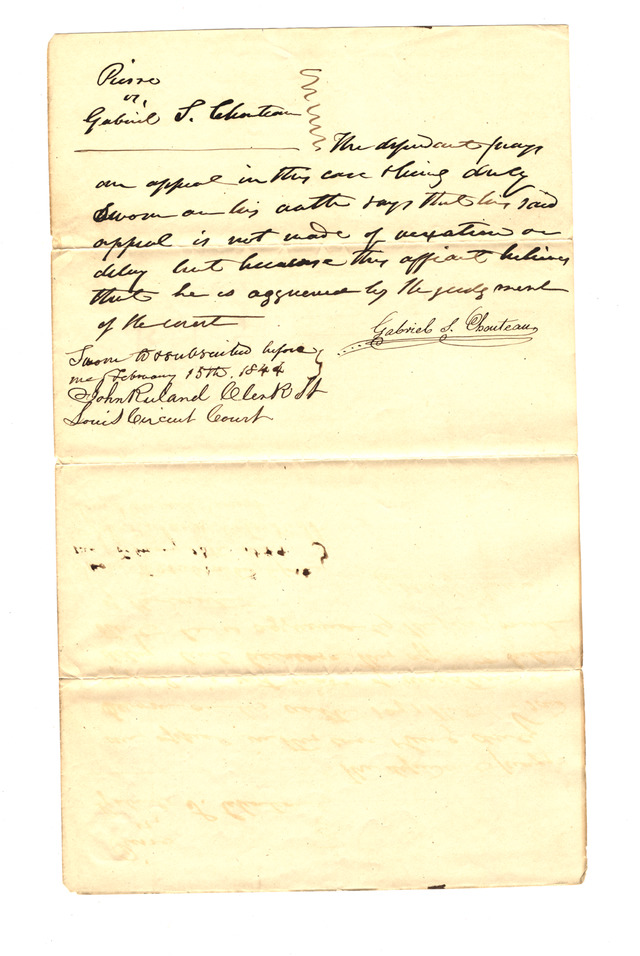 Pierre
vs,
Gabriel S. Chouteau
The defendant prays
an appeal in this case & being duly
Sworn on his oath says that his said
appeal is not made of vexation or
delay but because this affiant believes
that he is aggrieved by the judgment
of the court
Gabriel S. Chouteau
Sworn to & subscribed before
me February 15th, 1844
John Ruland Clerk St
Louis Circuit Court